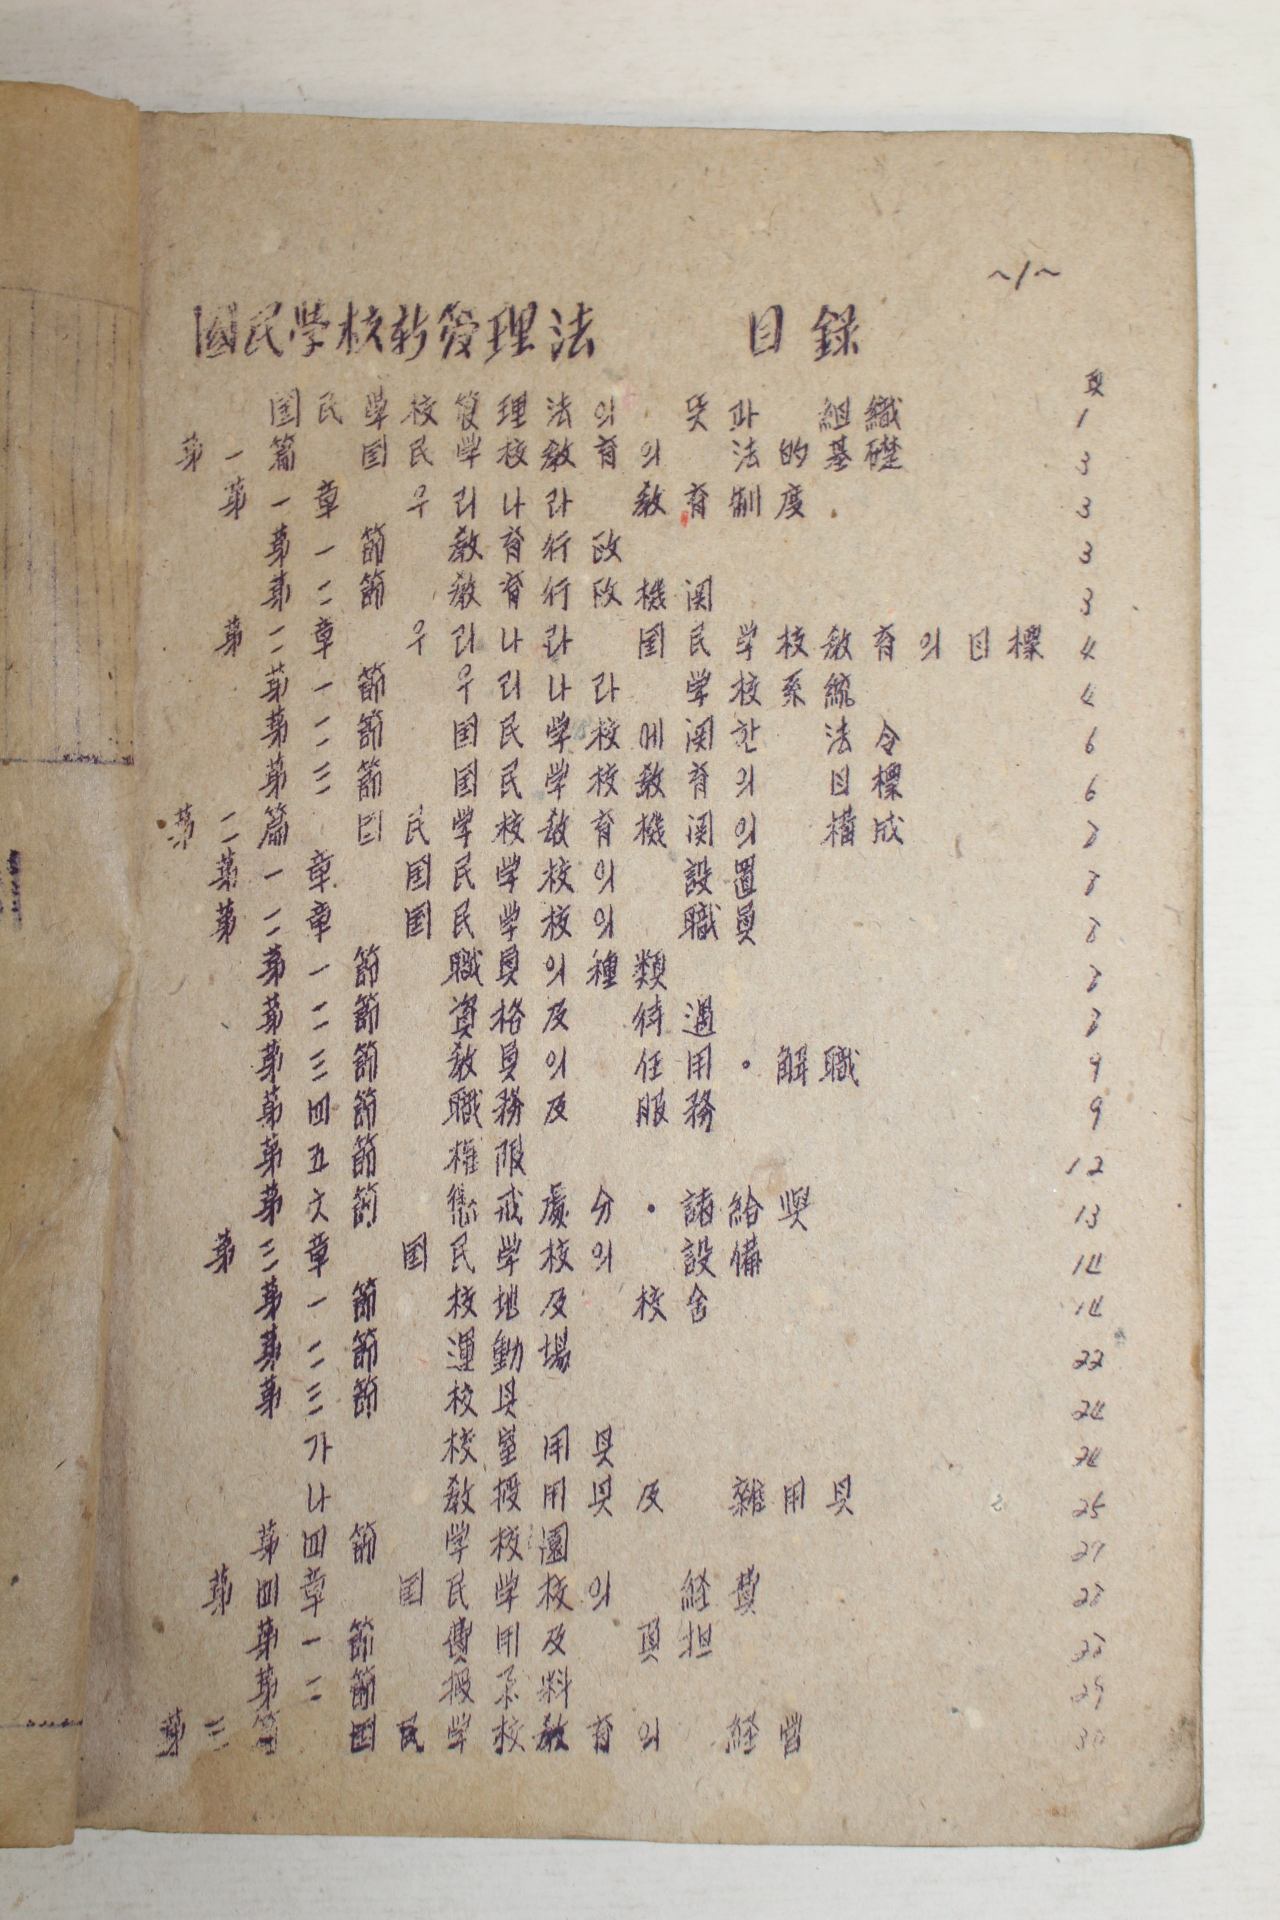 ~1~
國民學校新管理法 目錄
頁
国民学校管理法의 뜻과 組織 1
第一篇 国民学校教育의 法的基礎 3
第一章 우리나라 教育制度 3
第一節 教育行政 3
第二節 教育行政機関 3
第二章 우리나라 国民学校教育의目標 4
第一節 우리나라 学校系統 4
第二節 国民学校에関한 法令 6
第三節 国民学校教育의 目標 6
第二篇 国民学校教育機関의 構成 8
第一章 国民学校의 設置 8
第二章 国民学校의 職員 8
第一節 職員의種類 8
第二節 資格及 待遇 8
第三節 教員의 任用・解職 9
第四節 職務及 服務 9
第五節 権限 12
第六節 懲戒處分・諸給與 13
第三章 国民学校의 設備 14
第一節 校地及 校舍 14
第二節 運動場 22
第三節 校具 24
가 校室用具 24
나 教授用具及 雜用具 25
第四節 学校園 27
第四章 国民学校의 経費 28
第一節 費用及 負担 28
第二節 授業料 29
第三篇 国民学校教育의 経営 30